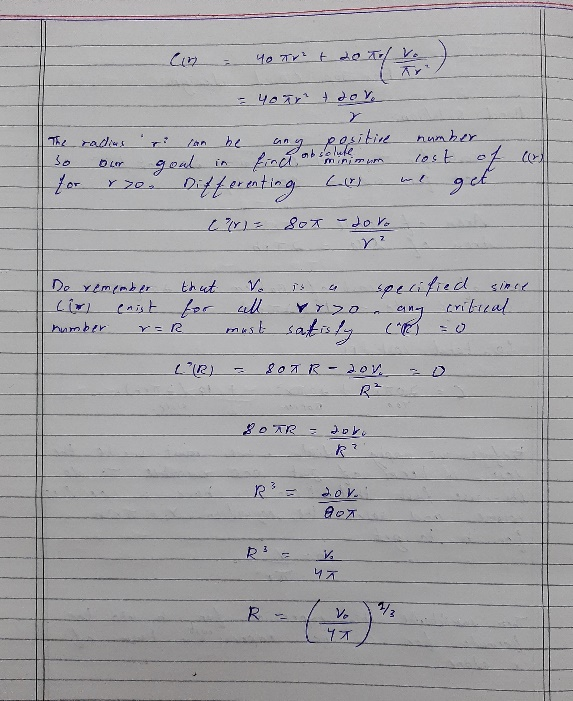 C(r) = 40 πr² + 20 πr ( V₀ / πr² )
= 40 πr² + 20 V₀ / r
The radius 'r' can be any positive number
so our goal in find absolute minimum cost of C(r)
for r > 0. Differenting C(r) we get
C'(r) = 80π - 20 V₀ / r²
Do remember that V₀ is a specified since
C'(r) exist for all ∀ r > 0. any critical
number r = R must satisfy C'(R) = 0
C'(R) = 80π R - 20 V₀ / R² = 0
80 πR = 20 V₀ / R²
R³ = 20 V₀ / 80π
R³ = V₀ / 4π
R = ( V₀ / 4π )^2/3